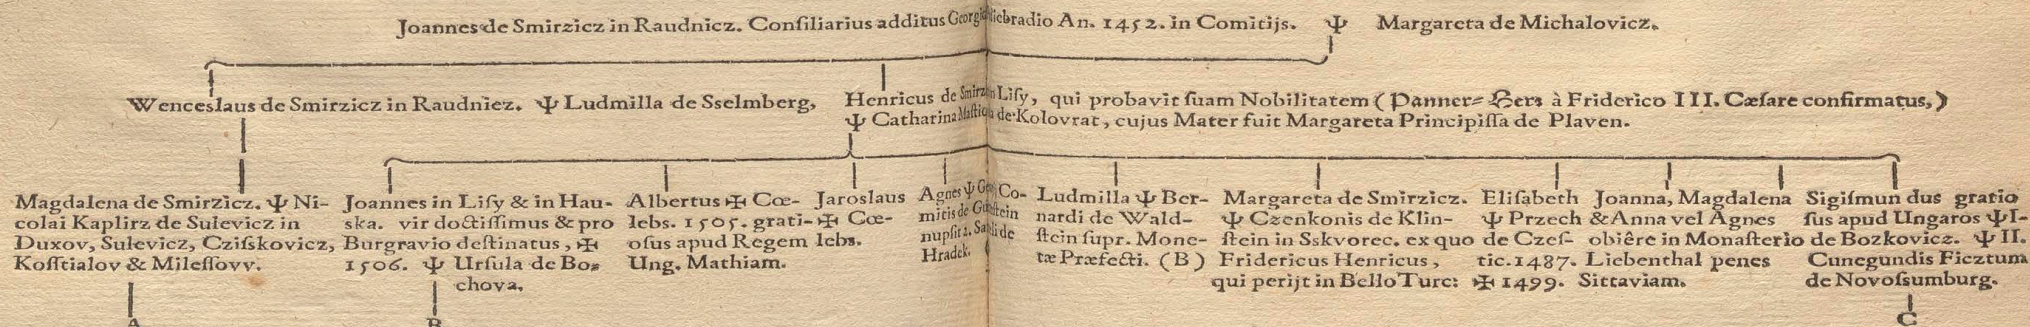 Joannes de Smirzicz in Raudnicz. Conſiliarius additus Georgio Podiebradio An. 1452. in Comitijs. Ψ Margareta de Michalovicz.
Wenceslaus de Smirzicz in Raudniez. Ψ Ludmilla de Sselmberg,
Henricus de Smirz in Liſy, qui probavit ſuam Nobilitatem (Panner-Hers à Friderico III. Cæſare confirmatus,)
Ψ Catharina de Kolovrat, cujus Mater fuit Margareta Principiſſa de Plaven.
Magdalena de Smirzicz. Ψ Ni-
colai Kaplirz de Sulevicz in
Duxov, Sulevicz, Cziſskovicz,
Koſſtialov & Mileſſovv.
A
Joannes in Liſy & in Hau-
ska. vir doctiſſimus & pro
Burgravio deſtinatus, ✠
1506. Ψ Urſula de Bo-
chova.
B
Albertus ✠ Cœ-
lebs. 1505. grati-
oſus apud Regem
Ung. Mathiam.
Jaroslaus
✠ Cœ-
lebs.
Agnes Ψ Co-
mitis de Gutſtein
nupſit 2. de
Hradek.
Ludmilla Ψ Ber-
nardi de Wald-
ſtein ſupr. Mone-
tæ Præfecti. (B)
Margareta de Smirzicz.
Ψ Czenkonis de Klin-
ſtein in Sskvorec. ex quo
Fridericus Henricus,
qui perijt in Bello Turc:
Eliſabeth
Ψ Przech
de Czeſ-
tic. 1487.
✠ 1499.
Joanna, Magdalena
& Anna vel Agnes
obiêre in Monaſterio
Liebenthal penes
Sittaviam.
Sigiſmun dus gratio
ſus apud Ungaros Ψ I-
de Bozkovicz. Ψ II.
Cunegundis Ficztum
de Novoſsumburg.
C